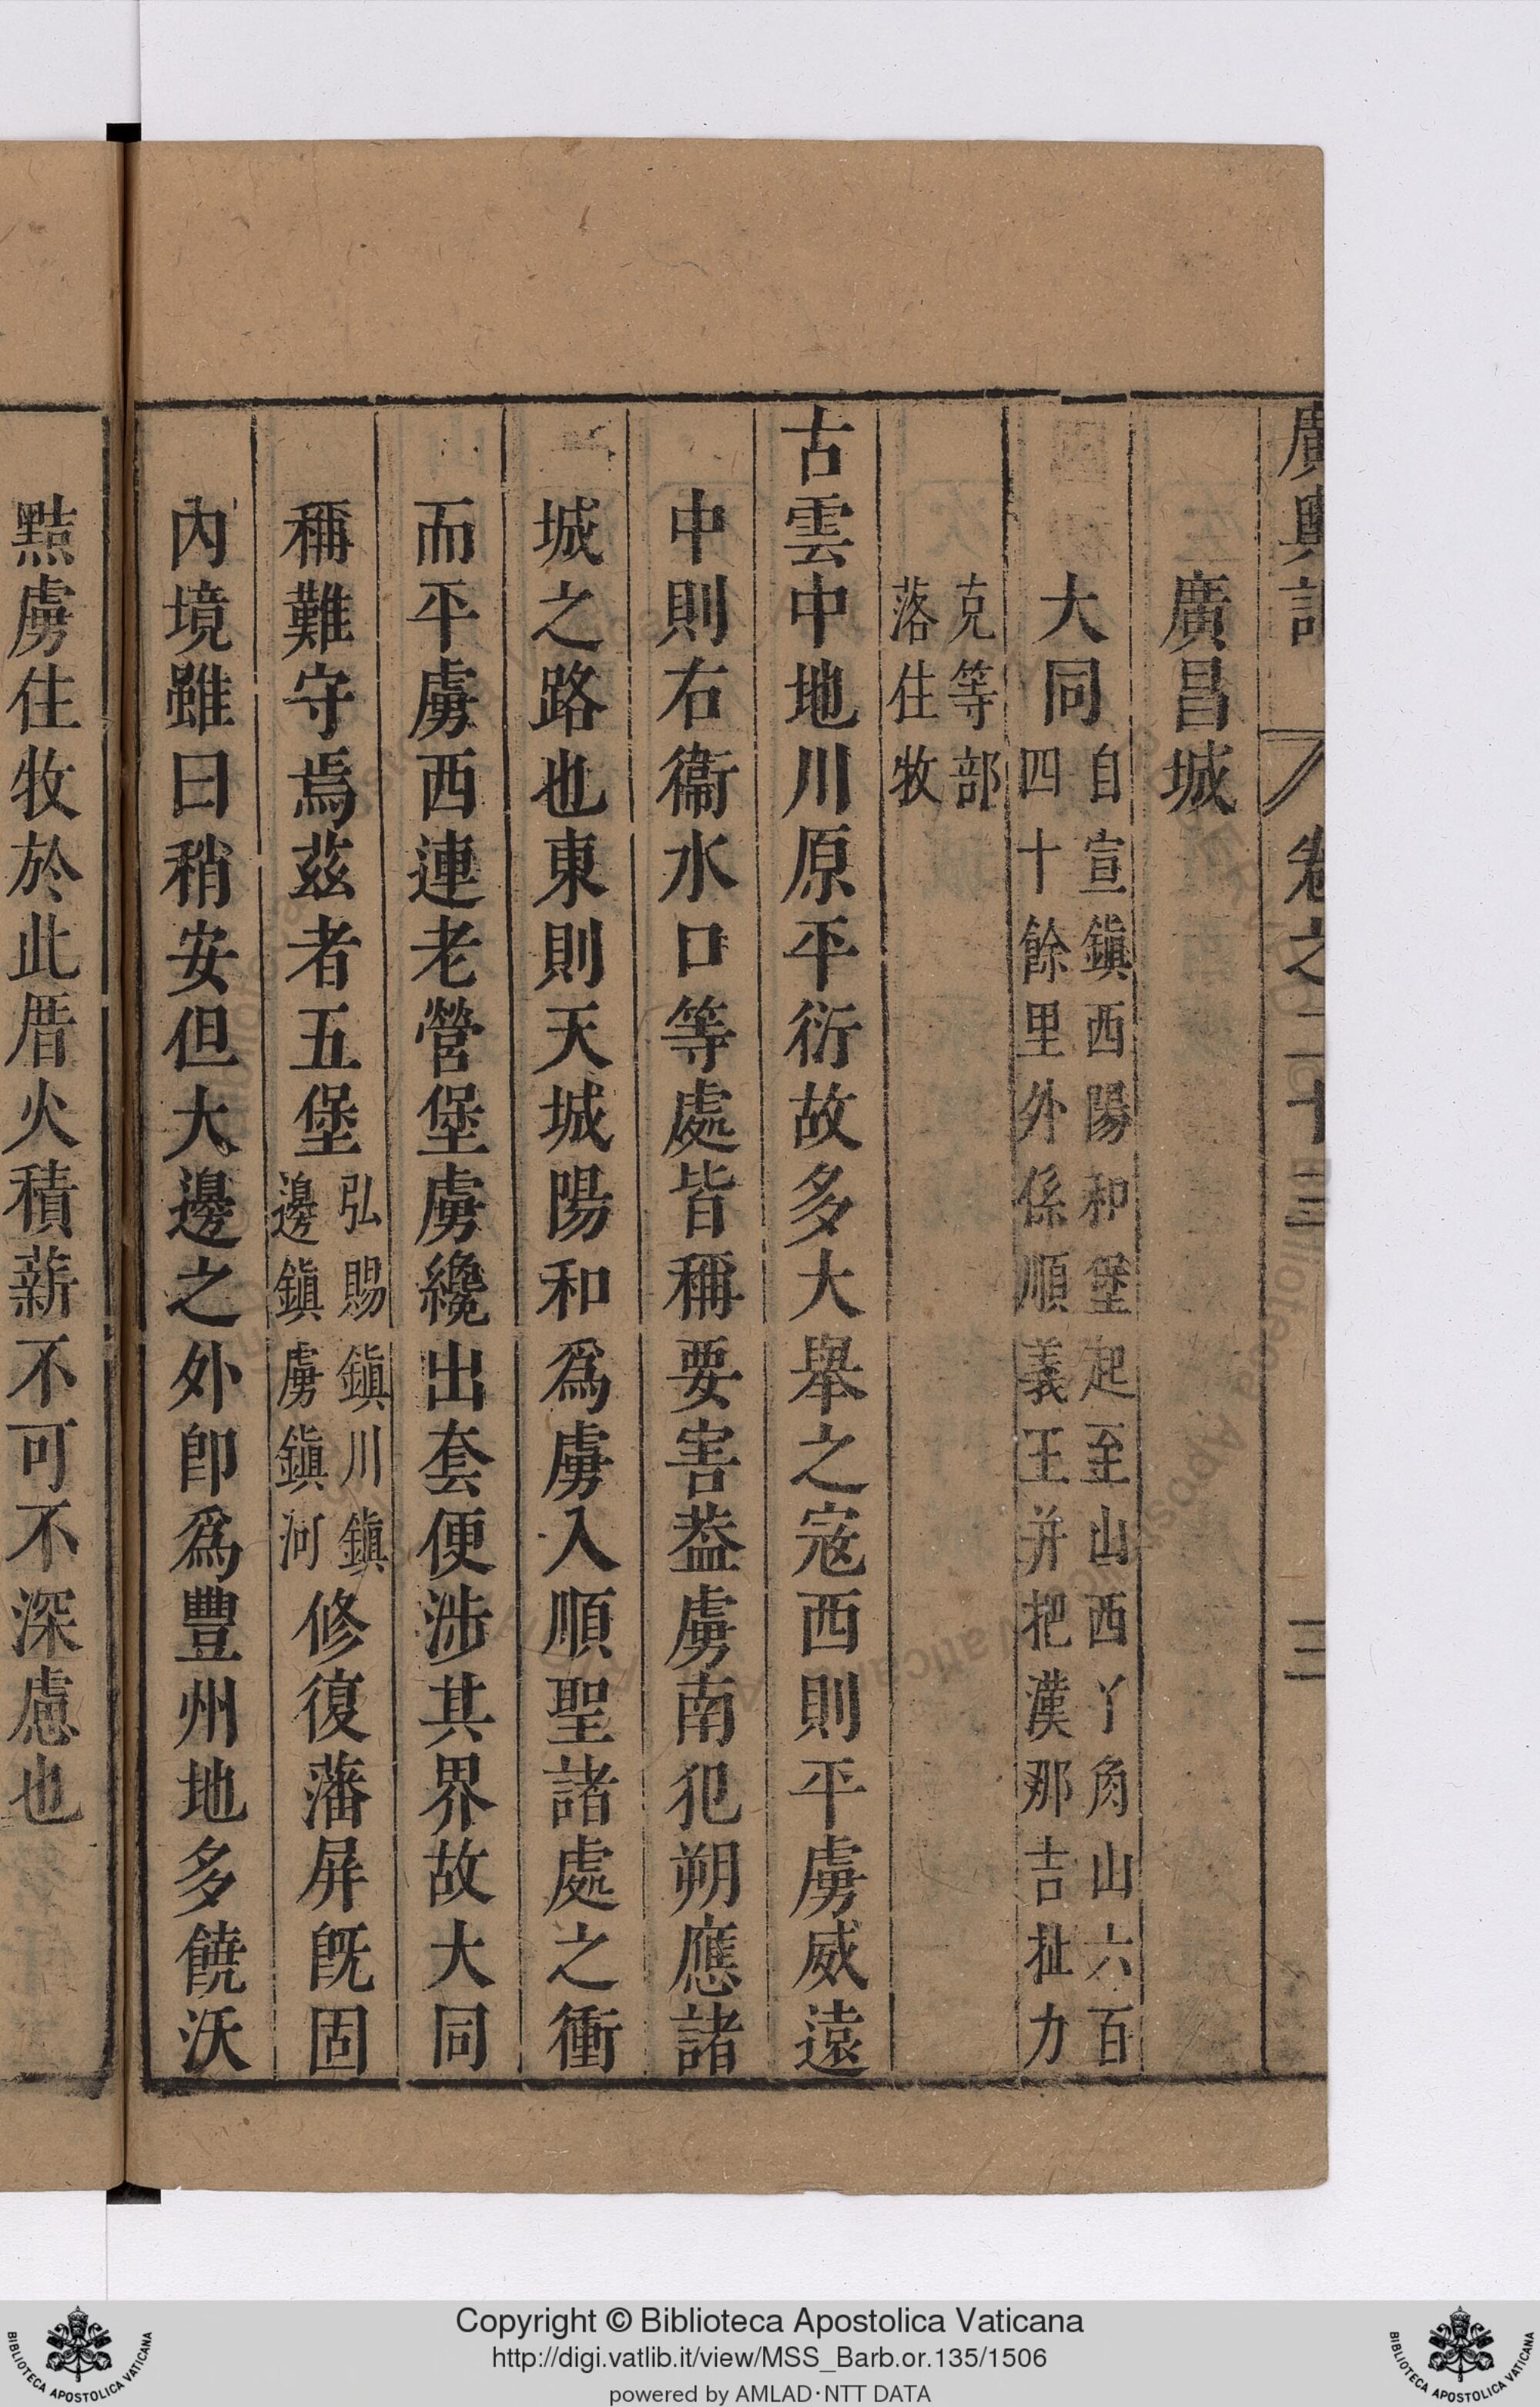 廣輿記 卷之二十三 三
廣昌城
大同自宣鎮西陽和堡起至山西丫角山六百
四十餘里外係順義王并把漢那吉扯力
克等部
落住牧
古雲中地川原平衍故多大舉之寇西則平虜威遠
中則右衞水口等處皆稱要害葢虜南犯朔應諸
城之路也東則天城陽和爲虜入順聖諸處之衝
而平虜西連老營堡虜纔出套便涉其界故大同
稱難守焉茲者五堡弘賜鎮川鎮
邊鎮虜鎮河修復藩屏旣固
內境雖曰稍安但大邊之外卽爲豐州地多饒沃
黠虜住牧於此厝火積薪不可不深慮也
Copyright © Biblioteca Apostolica Vaticana
http://digi.vatlib.it/view/MSS_Barb.or.135/1506
powered by AMLAD·NTT DATA
BIBLIOTECA APOSTOLICA VATICANA
BIBLIOTECA APOSTOLICA VATICANA